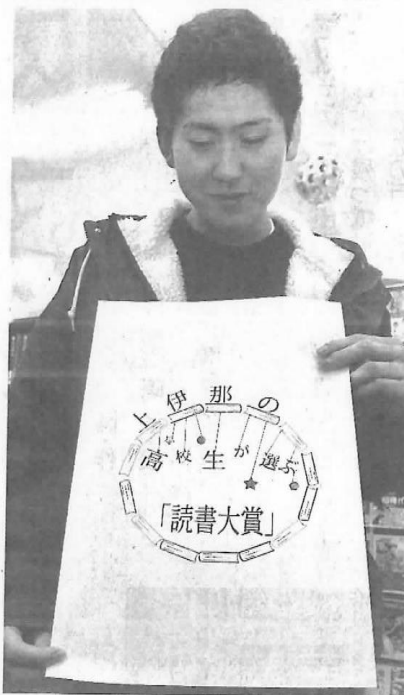 上伊那の
高校生が選ぶ
「読書大賞」